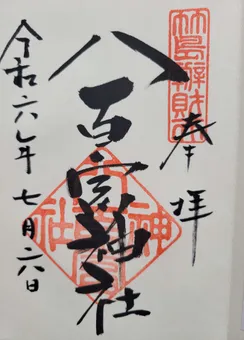 竹島辨財天
奉拝
八百富神社
八百富神社
令和六年七月六日